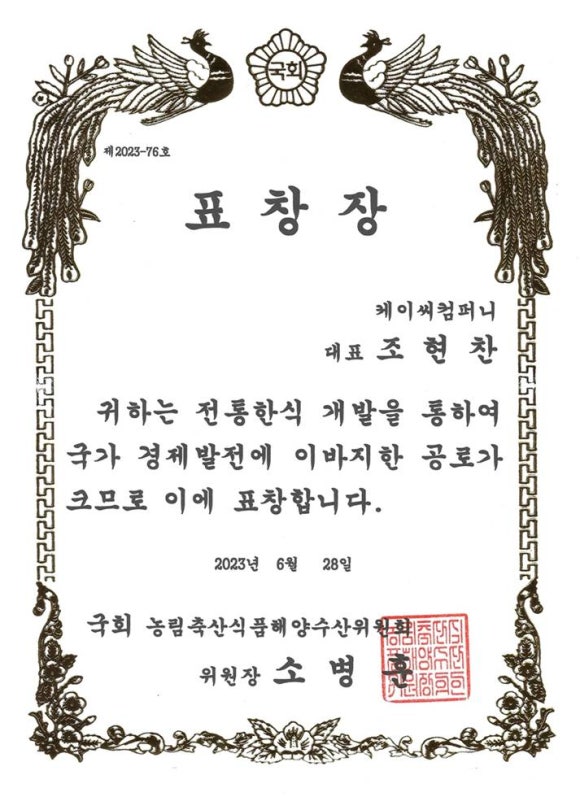 국회
제2023-76호
표 창 장
케이씨컴퍼니
대표 조 현 찬
귀하는 전통한식 개발을 통하여
국가 경제발전에 이바지한 공로가
크므로 이에 표창합니다.
2023년 6월 28일
국회 농림축산식품해양수산위원회
위원장 소 병 훈